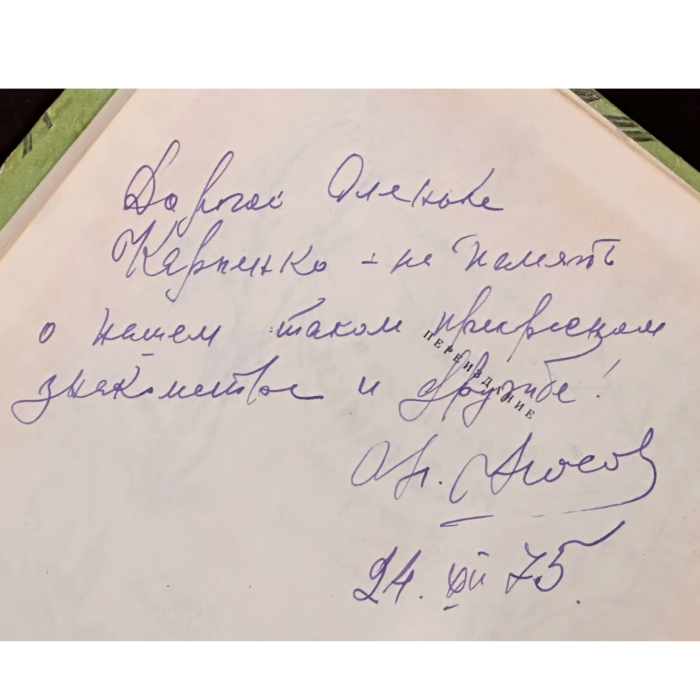 Дорогой Оленьке
Карпинко - на память
о нашем таком прекрасном
знакомстве и дружбе!
ПЕРЕИЗДАНИЕ
24. XII 75.